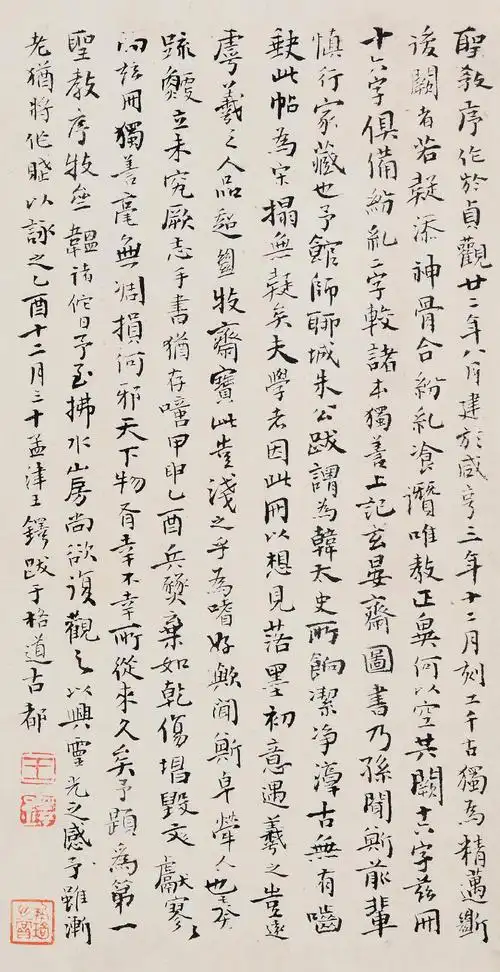 聖教序作於貞觀廿二年八月建於咸亨三年十二月刻工千古獨為精邁斷
後闕者若凝添神骨合紛糺唯教正何以空其闕十六字茲冊
十六字俱備紛糺二字較諸本獨善上記玄晏齋圖書乃孫聞斯前輩
慎行家藏也予館師聊城朱公跋謂為韓太史所餉潔淨渟古無有嚙
缺此帖為宋搨無疑矣夫學者因此冊以想見落墨初意遇羲之豈遠
虖羲之人品超牧齋寶此豈淺之乎為嗜好歟聞斯卓犖人也癸
疏鯁立未究厥志手書猶存噫甲申乙酉兵燹棄如乾傷塌毀文獻寥〻
而茲冊獨善毫無凋損何邪天下物有幸不幸所從來久矣予題為第一
聖教序牧無韞諸佗日予至拂水山房尚欲復觀之以興靈光之感予雖漸
老猶將作賦以詠之乙酉十二月三十孟津王鐸跋于格道古都
王鐸